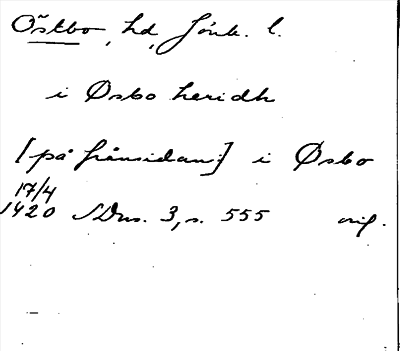 Östbo, hd, Jönk. l.
i Øsbo heridh
[på frånsidan:] i Øsbo
17/4
1420 SDns. 3, s. 555 orig.